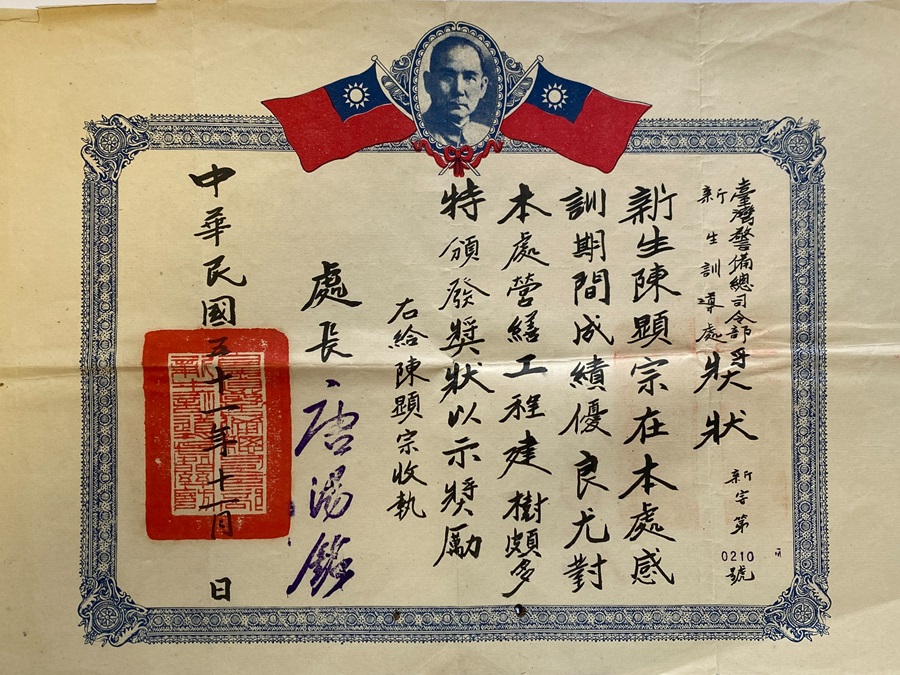 臺灣警備總司令部
新生訓導處
獎狀
新字第0210號
新生陳顯宗在本處感
訓期間成績優良尤對
本處營繕工程建樹頗多
特頒發獎狀以示獎勵
右給陳顯宗收執
處長唐湯銘
中華民國五十一年十一月 日